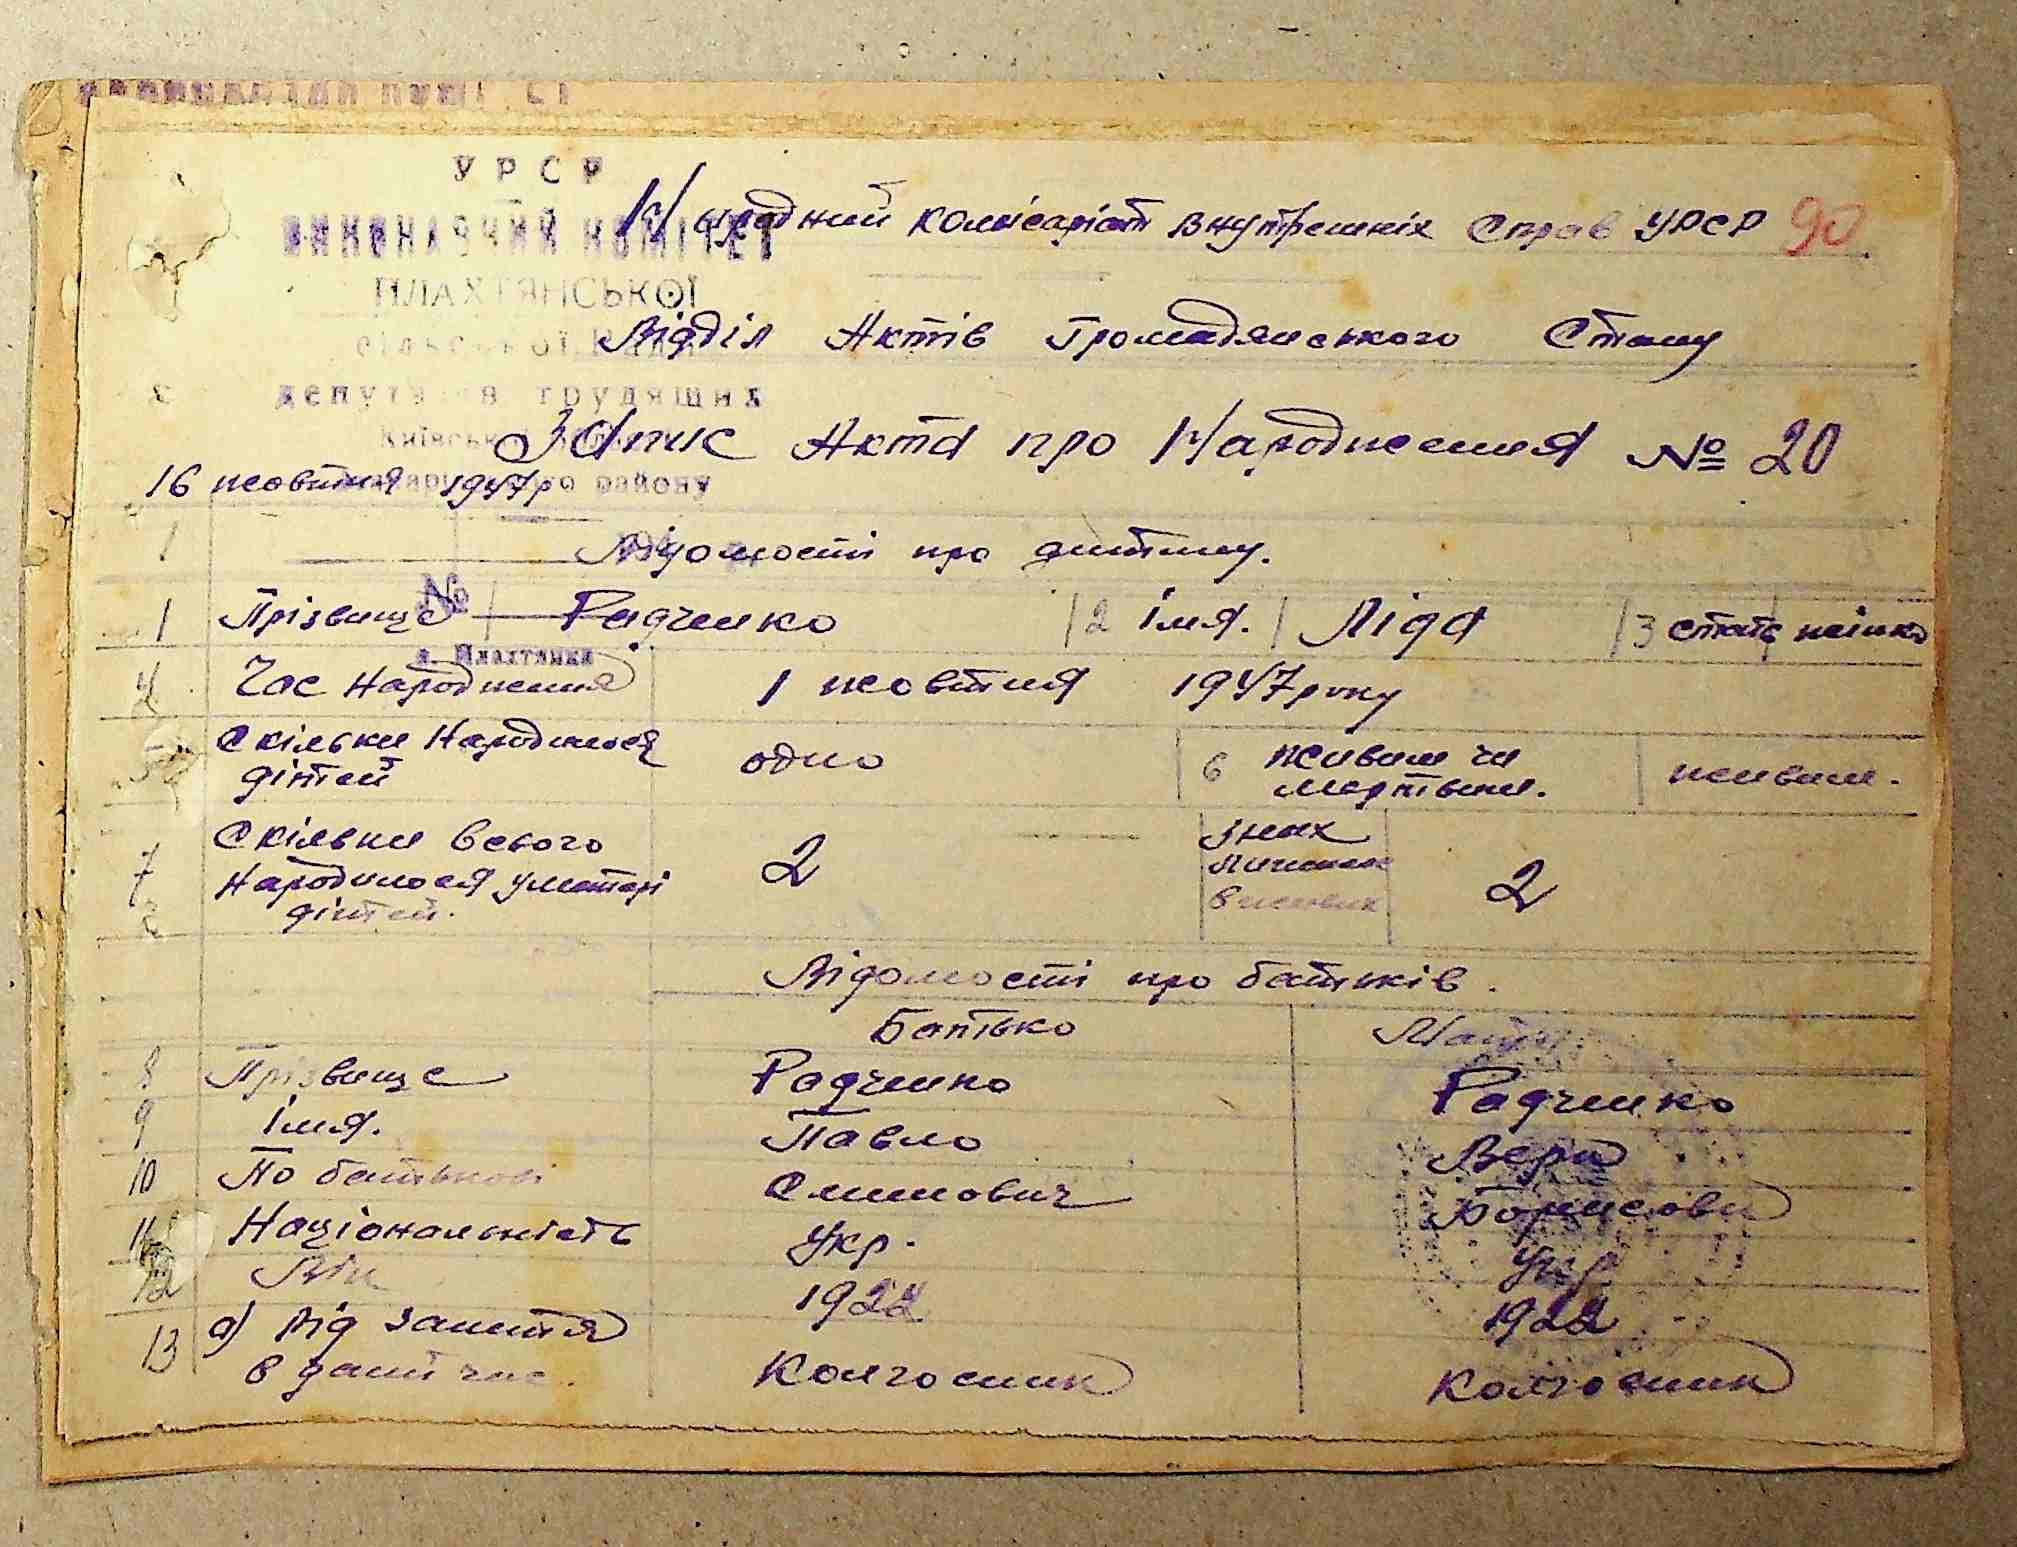 УРСР
ВИКОНАВЧИЙ КОМІТЕТ
Народний комісаріат внутрешніх Справ УРСР 90
ПЛАХТЯНСЬКОЇ
сільської Ради
Відділ Актів Громадянського Стану
депутатів трудящих
Київської
Запис Акта про Народження № 20
16 жовтня 1947р району
1 Відомості про дитину.
№
1 Прізвище Радченко 2 Імя. Ліда 3 стать жінка
с. Плахтянка
4 Час Народження 1 жовтня 1947 року
5 Скільки Народилося дітей одно 6 живим чи мертвим. живим.
7 Скільки всього Народилося у матері дітей. 2 З них 2
Відомості про батьків.
Батько Мати
8 Прізвище Радченко Радченко
9 Імя. Павло Вера
10 По батькові Борисовн
11 Національність Укр. Укр
12 Вік 1922 1922
13 а) Від заняття в даний час. Колгоспник Колгоспник